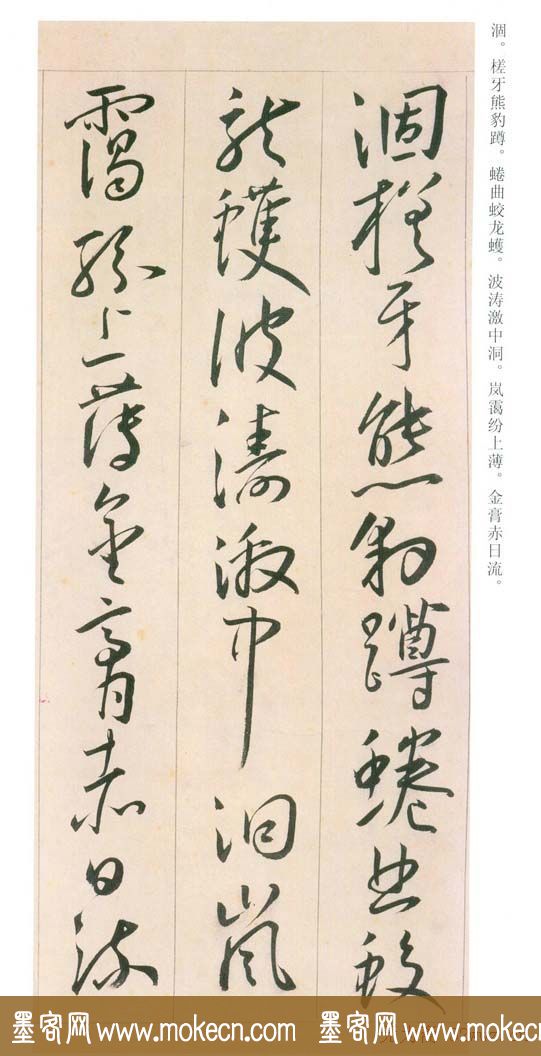 涸。槎牙熊豹蹲。蜷曲蛟龙蠖。波涛激中洞。岚霭纷上薄。金膏赤日流。
涸槎牙熊豹蹲蜷曲蛟
龙蠖波涛激中洞岚
霭纷上薄金膏赤日流
墨客网 www.mokecn.com 墨客网 www.mokecn.com